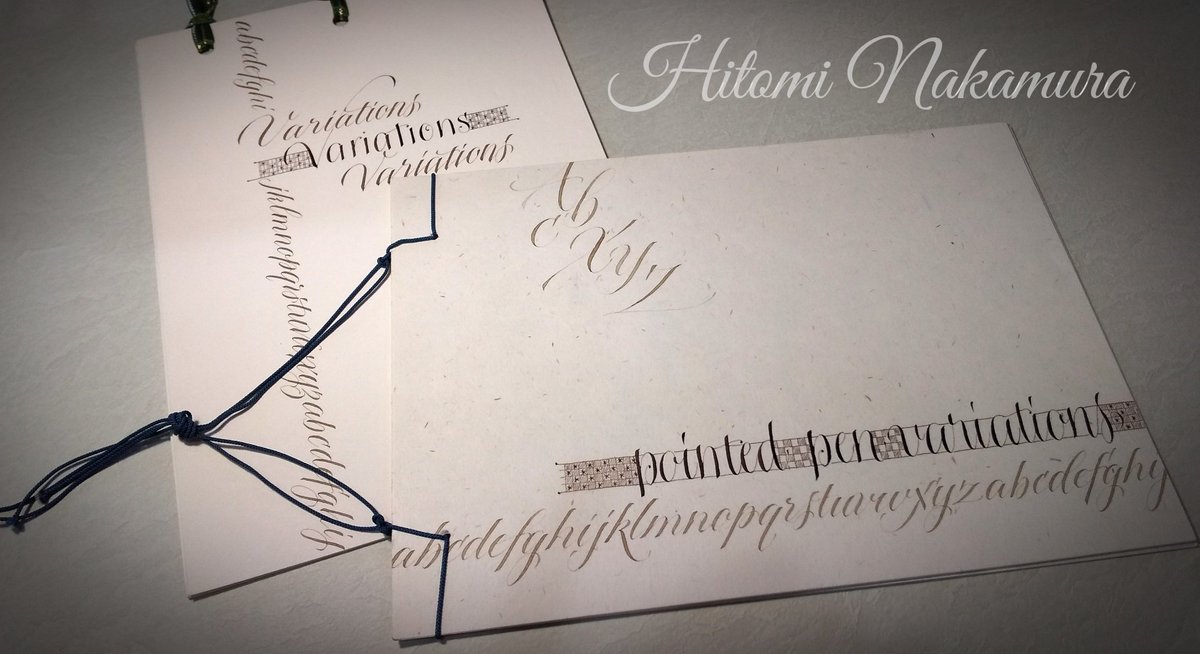 Hitomi Nakamura
abcdefghi
Variations
Variations
Variations
jklmnopqrstuvwxyzabcdefghij
Ab
c Xyz
pointed pen variations
abcdefghijklmnopqrstuvwxyzabcdefghij